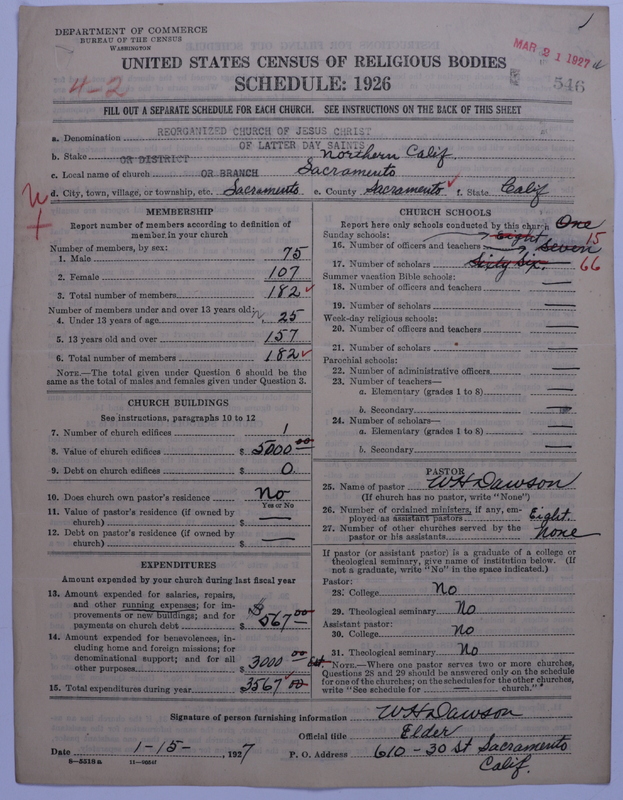 DEPARTMENT OF COMMERCE
BUREAU OF THE CENSUS
WASHINGTON
MAR 21 1927
546
4-2
UNITED STATES CENSUS OF RELIGIOUS BODIES
SCHEDULE: 1926
FILL OUT A SEPARATE SCHEDULE FOR EACH CHURCH. SEE INSTRUCTIONS ON THE BACK OF THIS SHEET
a. Denomination REORGANIZED CHURCH OF JESUS CHRIST
OF LATTER DAY SAINTS
b. Stake OR DISTRICT Northern Calif
c. Local name of church OR BRANCH Sacramento
d. City, town, village, or township, etc. Sacramento e. County Sacramento f. State Calif
MEMBERSHIP
Report number of members according to definition of
member in your church
Number of members, by sex:
1. Male 75
2. Female 107
3. Total number of members 182
Number of members under and over 13 years old:
4. Under 13 years of age 25
5. 13 years old and over 157
6. Total number of members 182
NOTE.—The total given under Question 6 should be
the same as the total of males and females given under Question 3.
CHURCH BUILDINGS
See instructions, paragraphs 10 to 12
7. Number of church edifices 1
8. Value of church edifices $ 5000 00
9. Debt on church edifices $ 0.
10. Does church own pastor's residence No
Yes or No
11. Value of pastor's residence (if owned by
church) $ —
12. Debt on pastor's residence (if owned by
church) $ —
EXPENDITURES
Amount expended by your church during last fiscal year
13. Amount expended for salaries, repairs,
and other running expenses; for im-
provements or new buildings; and for
payments on church debt $ 567 00
14. Amount expended for benevolences, in-
cluding home and foreign missions; for
denominational support; and for all
other purposes $ 3000 00 Est.
15. Total expenditures during year 3567 00
CHURCH SCHOOLS
Report here only schools conducted by this church One
Sunday schools: Eight 15
16. Number of officers and teachers Seven
17. Number of scholars Sixty Six. 66
Summer vacation Bible schools:
18. Number of officers and teachers —
19. Number of scholars —
Week-day religious schools:
20. Number of officers and teachers —
21. Number of scholars —
Parochial schools:
22. Number of administrative officers —
23. Number of teachers—
a. Elementary (grades 1 to 8) —
b. Secondary —
24. Number of scholars—
a. Elementary (grades 1 to 8) —
b. Secondary —
PASTOR
25. Name of pastor W H Dawson
(If church has no pastor, write "None")
26. Number of ordained ministers, if any, em-
ployed as assistant pastors Eight.
27. Number of other churches served by the
pastor or his assistants None
If pastor (or assistant pastor) is a graduate of a college or
theological seminary, give name of institution below. (If
not a graduate, write "No" in the space indicated.)
Pastor:
28. College No
29. Theological seminary No
Assistant pastor:
30. College No
31. Theological seminary No
NOTE.—Where one pastor serves two or more churches,
Questions 28 and 29 should be answered only on the schedule
for one of the churches; on the schedules for the other churches,
write "See schedule for — church."
Signature of person furnishing information W H Dawson
Official title Elder
Date 1-15-, 1927 P. O. Address 610-30 St Sacramento
Calif.
8-5518a 11-90547